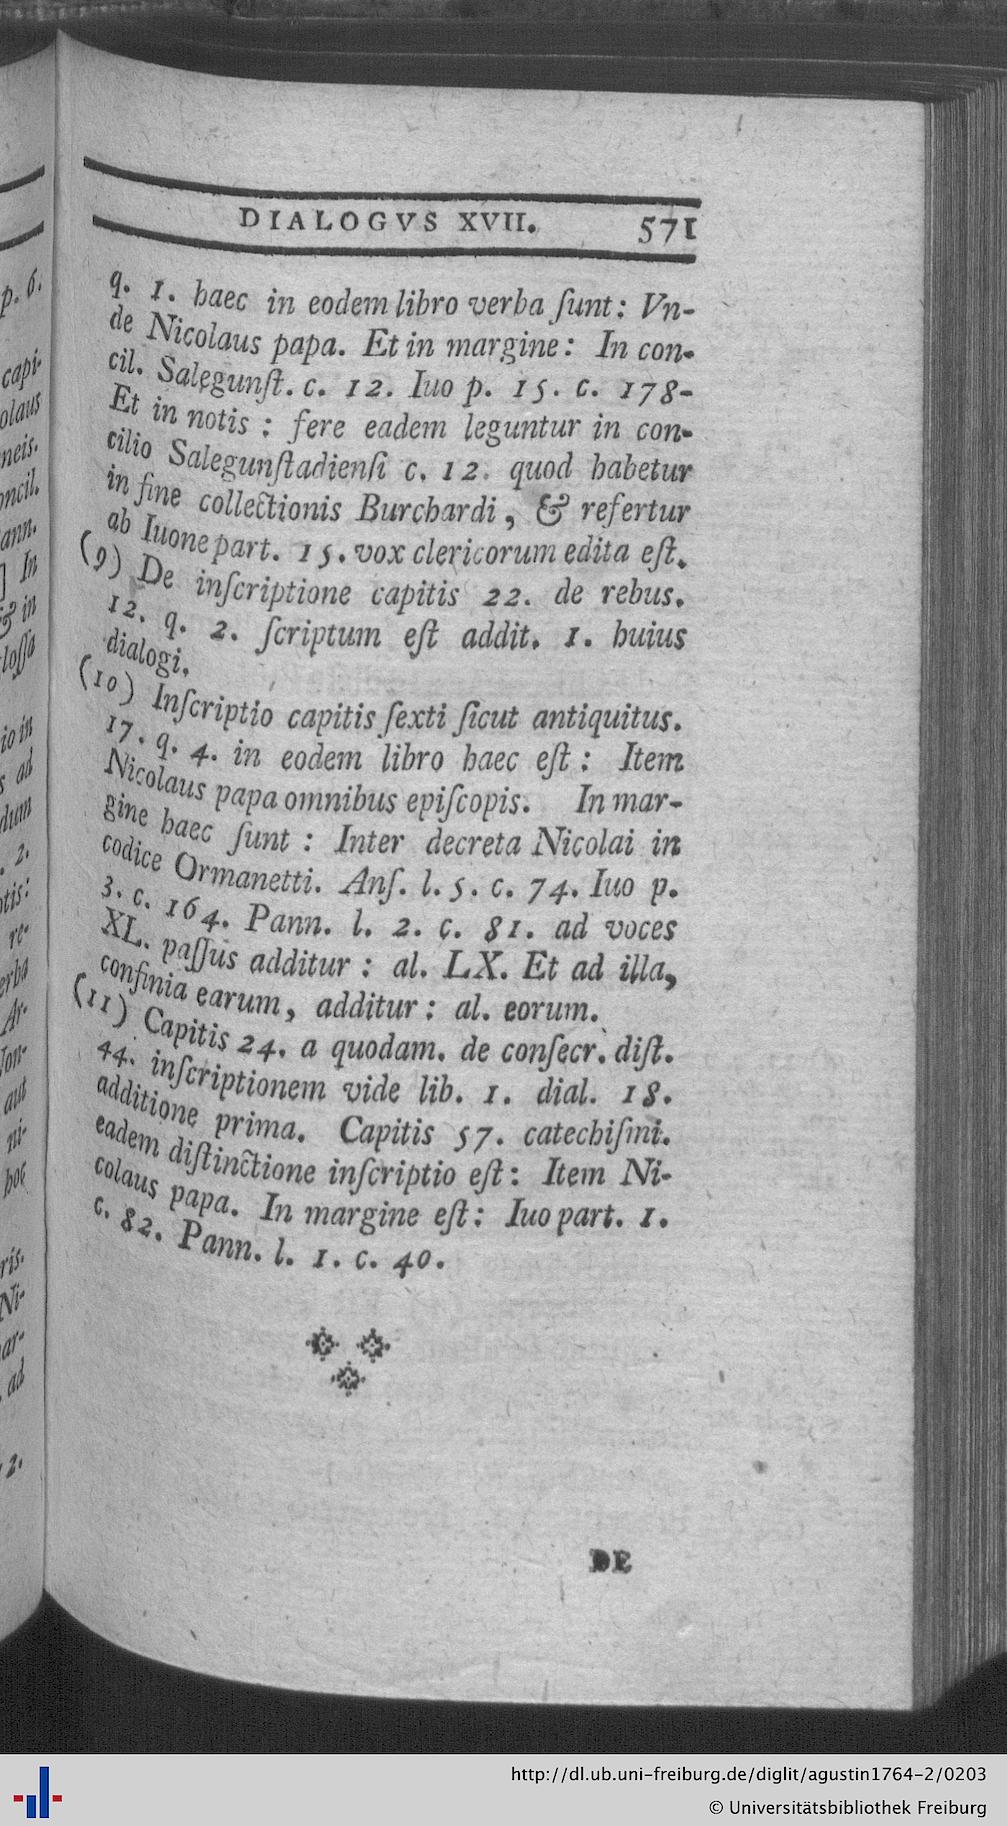 DIALOGVS XVII. 571
q. 1. haec in eodem libro verba ſunt: Vn-
de Nicolaus papa. Et in margine: In con-
cil. Salegunſt. c. 12. Iuo p. 15. c. 178-
Et in notis: fere eadem leguntur in con-
cilio Salegunſtadienſi c. 12. quod habetur
in fine collectionis Burchardi, & refertur
ab Iuone part. 15. vox clericorum edita eſt.
(9) De inſcriptione capitis 22. de rebus.
12. q. 2. ſcriptum eſt addit. 1. huius
dialogi.
(10) Inſcriptio capitis ſexti ſicut antiquitus.
17. q. 4. in eodem libro haec eſt: Item
Nicolaus papa omnibus epiſcopis. In mar-
gine haec ſunt: Inter decreta Nicolai in
codice Ormanetti. Anſ. l. 5. c. 74. Iuo p.
3. c. 164. Pann. l. 2. c. 81. ad voces
XL. paſſus additur: al. LX. Et ad illa,
confinia earum, additur: al. eorum.
(11) Capitis 24. a quodam. de conſecr. diſt.
44. inſcriptionem vide lib. 1. dial. 18.
additione prima. Capitis 57. catechiſmi.
eadem diſtinctione inſcriptio eſt: Item Ni-
colaus papa. In margine eſt: Iuo part. 1.
c. 82. Pann. l. 1. c. 40.
DE
p. 6.
capi-
olaus
neis.
oncil.
ann.
] In
& in
loſſa
io in
s ad
dum
. 2.
otis:
re-
erba
Ar-
Ion-
aut
ni-
hoc
ris.
Ni-
ar-
. ad
2.
http://dl.ub.uni-freiburg.de/diglit/agustin1764-2/0203
© Universitätsbibliothek Freiburg